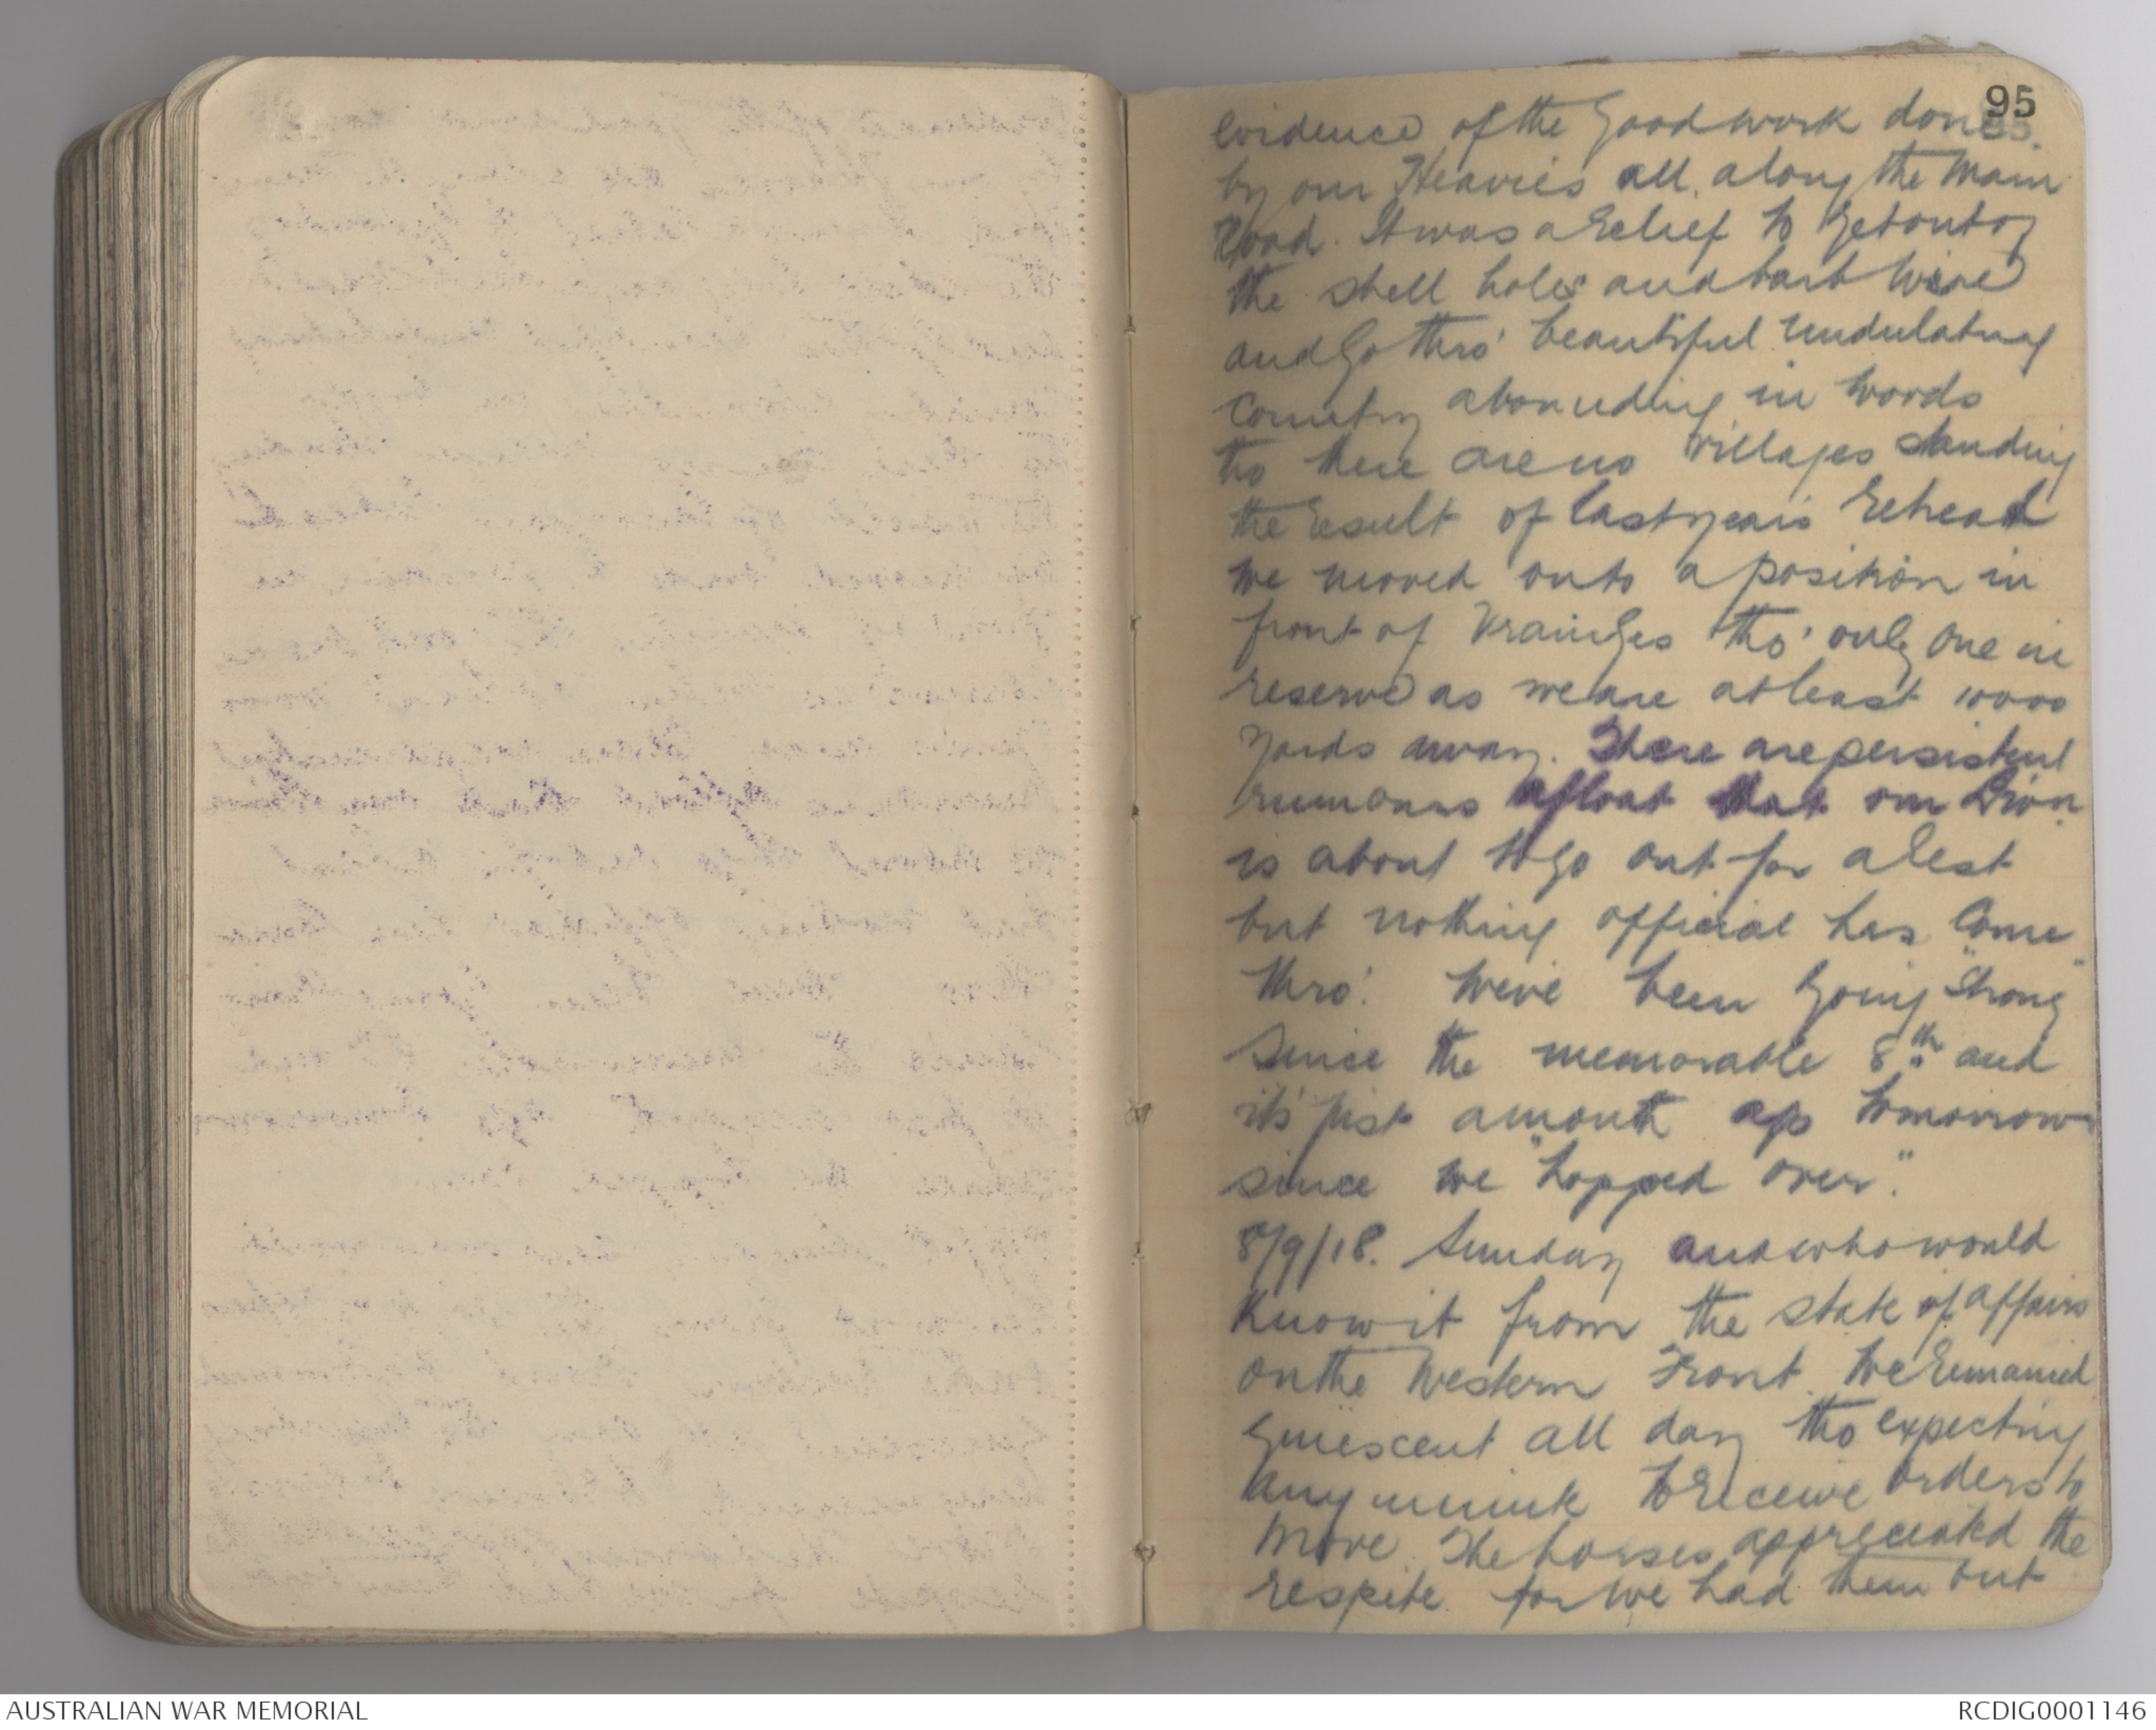 95
evidence of the good work done
by our Heavies all along the main
Road. It was a relief to get out of
the shell holes and barb wire
and go thro' beautiful undulating
country abounding in woods
tho there are no villages standing
the result of last years retreat
We moved onto a position in
front of Vraignes tho' only one in
reserve as we are at least 10000
yards away. There are persistent
rumours afloat that our Divn
is about to go out for a rest
but nothing official has come
thro'. We've been going "strong"
since the memorable 8th and
it's just a month ago tomorrow
since we "hopped over."
8/9/18. Sunday and who would
Know it from the state of affairs
on the Western Front. We remained
quiescent all day tho expecting
any minute to receive orders to
move. The horses appreciated the
respite for we had them out
AUSTRALIAN WAR MEMORIAL
RCDIG0001146